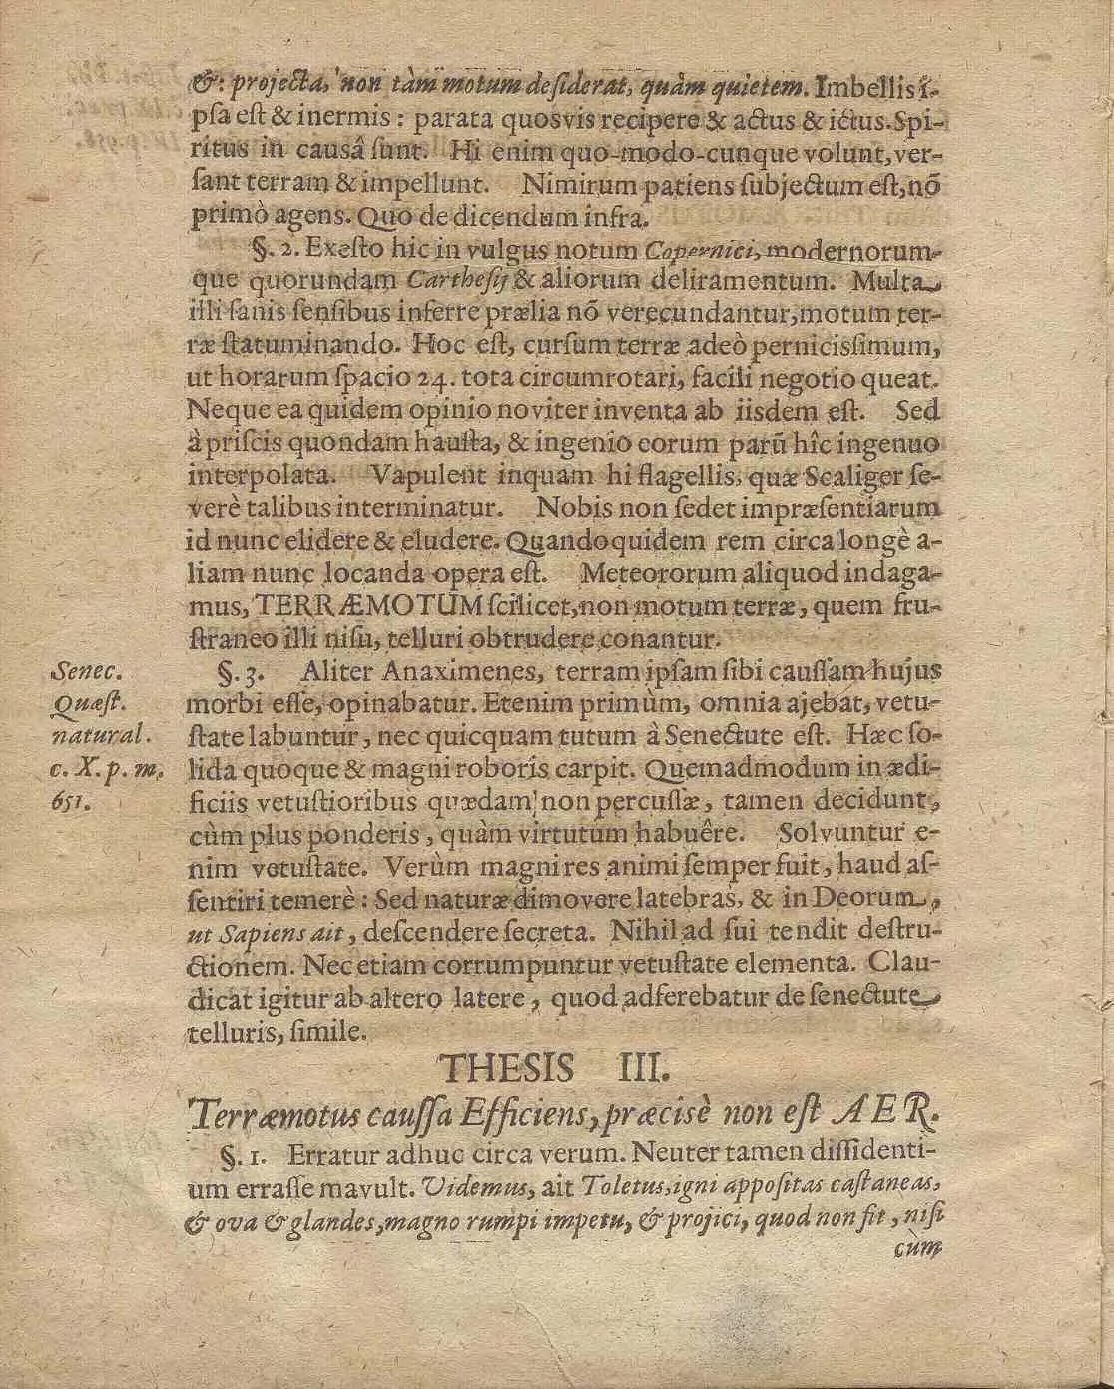 &: projecta, non tàm motum desiderat, quàm quietem. Imbellis ĩ-
psa est & inermis : parata quosvis recipere & actus & ictus. Spi-
ritus in causâ sunt. Hi enim quo-modo-cunque volunt, ver-
sant terram & impellunt. Nimirum patiens subjectum est, nõ
primò agens. Quo de dicendum infra.
§. 2. Exesto hic in vulgus notum Copernici, modernorum-
que quorundam Carthesij & aliorum deliramentum. Multa
illi sanis sensibus inferre prælia nõ verecundantur, motum ter-
ræ statuminando. Hoc est, cursum terræ adeò pernicissimum,
ut horarum spacio 24. tota circumrotari, facili negotio queat.
Neque ea quidem opinio noviter inventa ab iisdem est. Sed
à priscis quondam hausta, & ingenio eorum parũ hîc ingenuo
interpolata. Vapulent inquam hi flagellis, quæ Scaliger se-
verè talibus interminatur. Nobis non sedet impræsentiarum
id nunc elidere & eludere. Quandoquidem rem circa longè a-
liam nunc locanda opera est. Meteororum aliquod indaga-
mus, TERRÆMOTUM scilicet, non motum terræ, quem fru-
straneo illi nisu, telluri obtrudere conantur.
§. 3. Aliter Anaximenes, terram ipsam sibi caussam hujus
morbi esse, opinabatur. Etenim primùm, omnia ajebat, vetu-
state labuntur, nec quicquam tutum à Senectute est. Hæc so-
lida quoque & magni roboris carpit. Quemadmodum in ædi-
ficiis vetustioribus quædam non percussæ, tamen decidunt,
cùm plus ponderis, quàm virtutum habuêre. Solvuntur e-
nim vetustate. Verùm magni res animi semper fuit, haud as-
sentiri temerè : Sed naturæ dimovere latebras, & in Deorum,
ut Sapiens ait, descendere secreta. Nihil ad sui tendit destru-
ctionem. Nec etiam corrumpuntur vetustate elementa. Clau-
dicat igitur ab altero latere, quod adferebatur de senectute
telluris, simile.
Senec.
Quæst.
natural.
c. X. p. m.
651.
THESIS III.
Terræmotus caussa Efficiens, præcisè non est AER.
§. 1. Erratur adhuc circa verum. Neuter tamen dissidenti-
um errasse mavult. Videmus, ait Toletus, igni appositas castaneas,
& ova & glandes, magno rumpi impetu, & projici, quod non fit, nisi
cùm